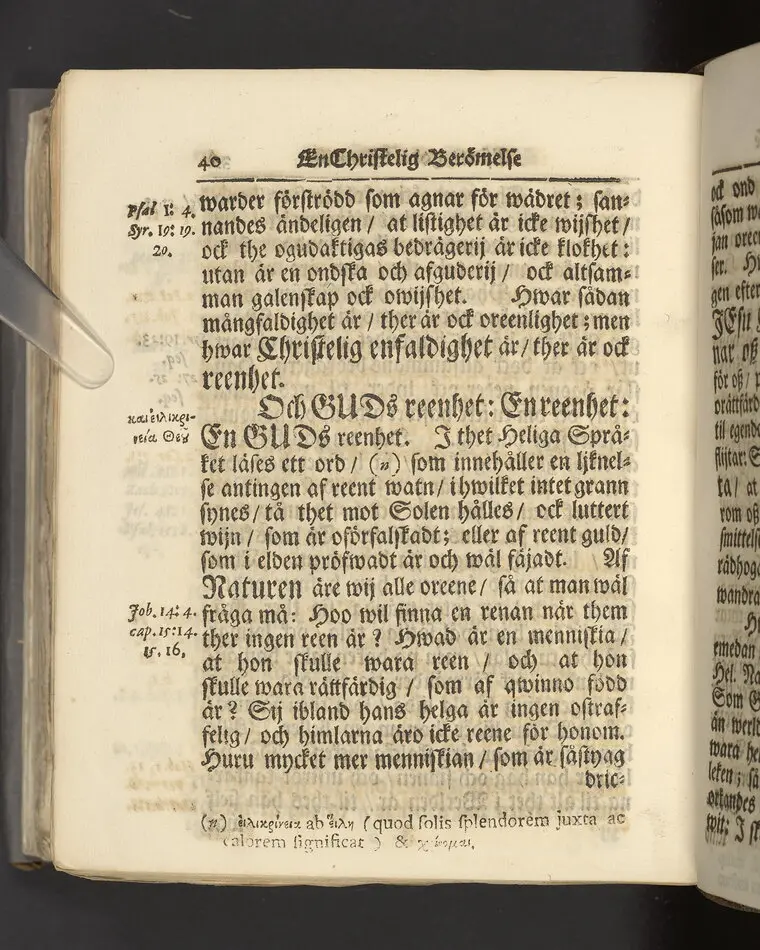 40 En Christelig Berömelse
Psal 1: 4.
Syr. 19: 19.
20.
warder förströdd som agnar för wädret; san-
nandes ändeligen / at listighet är icke wijshet /
ock the ogudaktigas bedrägerij är icke klokhet:
utan är en ondska och afguderij / ock altsam-
man galenskap ock owijshet. Hwar sådan
mångfaldighet är / ther är ock oreenlighet; men
hwar Christelig enfaldighet är / ther är ock
reenhet.
καὶ εἰλικρι-
νεία Θεῦ
Och GUDs reenhet: En reenhet:
En GUDs reenhet. I thet Heliga Språ-
ket läses ett ord / (n) som innehåller en lijknel-
se antingen af reent watn / i hwilket intet grann
synes / tå thet mot Solen hålles / ock luttert
wijn / som är oförfalskadt; eller af reent guld /
som i elden pröfwadt är och wäl fäjadt. Af
Naturen äre wij alle oreene / så at man wäl
Job. 14: 4.
cap. 15: 14.
15. 16.
fråga må: Hoo wil finna en renan när them
ther ingen reen är? Hwad är en menniskia /
at hon skulle wara reen / och at hon
skulle wara rättfärdig / som af qwinno född
är? Sij ibland hans helga är ingen ostraf-
felig / och himlarna äro icke reene för honom.
Huru mycket mer menniskian / som är såstygg
dric-
(n) εἰλικρίνεια ab εἵλη (quod solis splendorem juxta ac
calorem significat) & κρίνομαι.